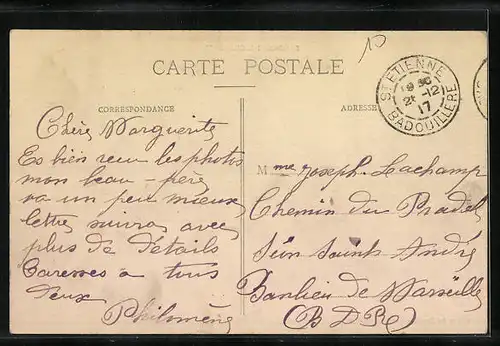 CARTE POSTALE
CORRESPONDANCE
ADRESSE
ST ETIENNE
19 30
21 -12
17
BADOUILLERE
10
Chère Marguerite
Es bien reçu les photos
mon beau-père
va un peu mieux
lettre suivra avec
plus de détails
Caresses a tous
deux
Philomène
Mme Joseph Lachamp
Chemin du Pradel
Saint André
Banlieu de Marseille
(B D R)